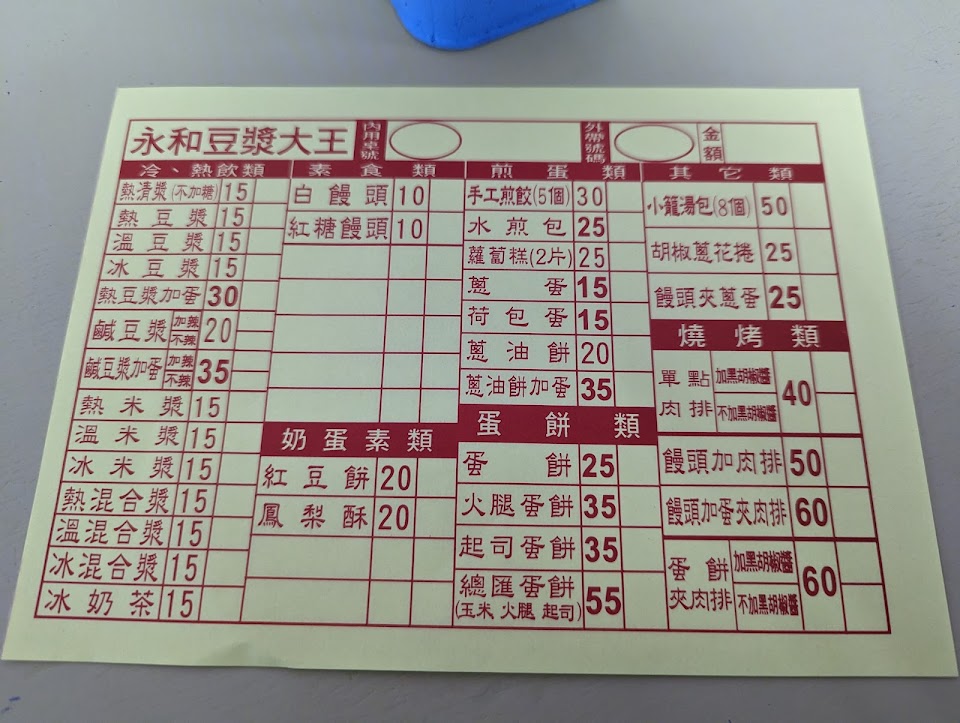 永和豆漿大王 內用桌號 外帶號碼 金額
冷、熱飲類
熱清漿(不加糖) 15
熱豆漿 15
溫豆漿 15
冰豆漿 15
熱豆漿加蛋 30
鹹豆漿 加辣 不辣 20
鹹豆漿加蛋 加辣 不辣 35
熱米漿 15
溫米漿 15
冰米漿 15
熱混合漿 15
溫混合漿 15
冰混合漿 15
冰奶茶 15
素食類
白饅頭 10
紅糖饅頭 10
奶蛋素類
紅豆餅 20
鳳梨酥 20
煎蛋類
手工煎餃(5個) 30
水煎包 25
蘿蔔糕(2片) 25
蔥蛋 15
荷包蛋 15
蔥油餅 20
蔥油餅加蛋 35
蛋餅類
蛋餅 25
火腿蛋餅 35
起司蛋餅 35
總匯蛋餅 55
(玉米 火腿 起司)
其它類
小籠湯包(8個) 50
胡椒蔥花捲 25
饅頭夾蔥蛋 25
燒烤類
單點肉排 加黑胡椒醬 不加黑胡椒醬 40
饅頭加肉排 50
饅頭加蛋夾肉排 60
蛋餅夾肉排 加黑胡椒醬 不加黑胡椒醬 60